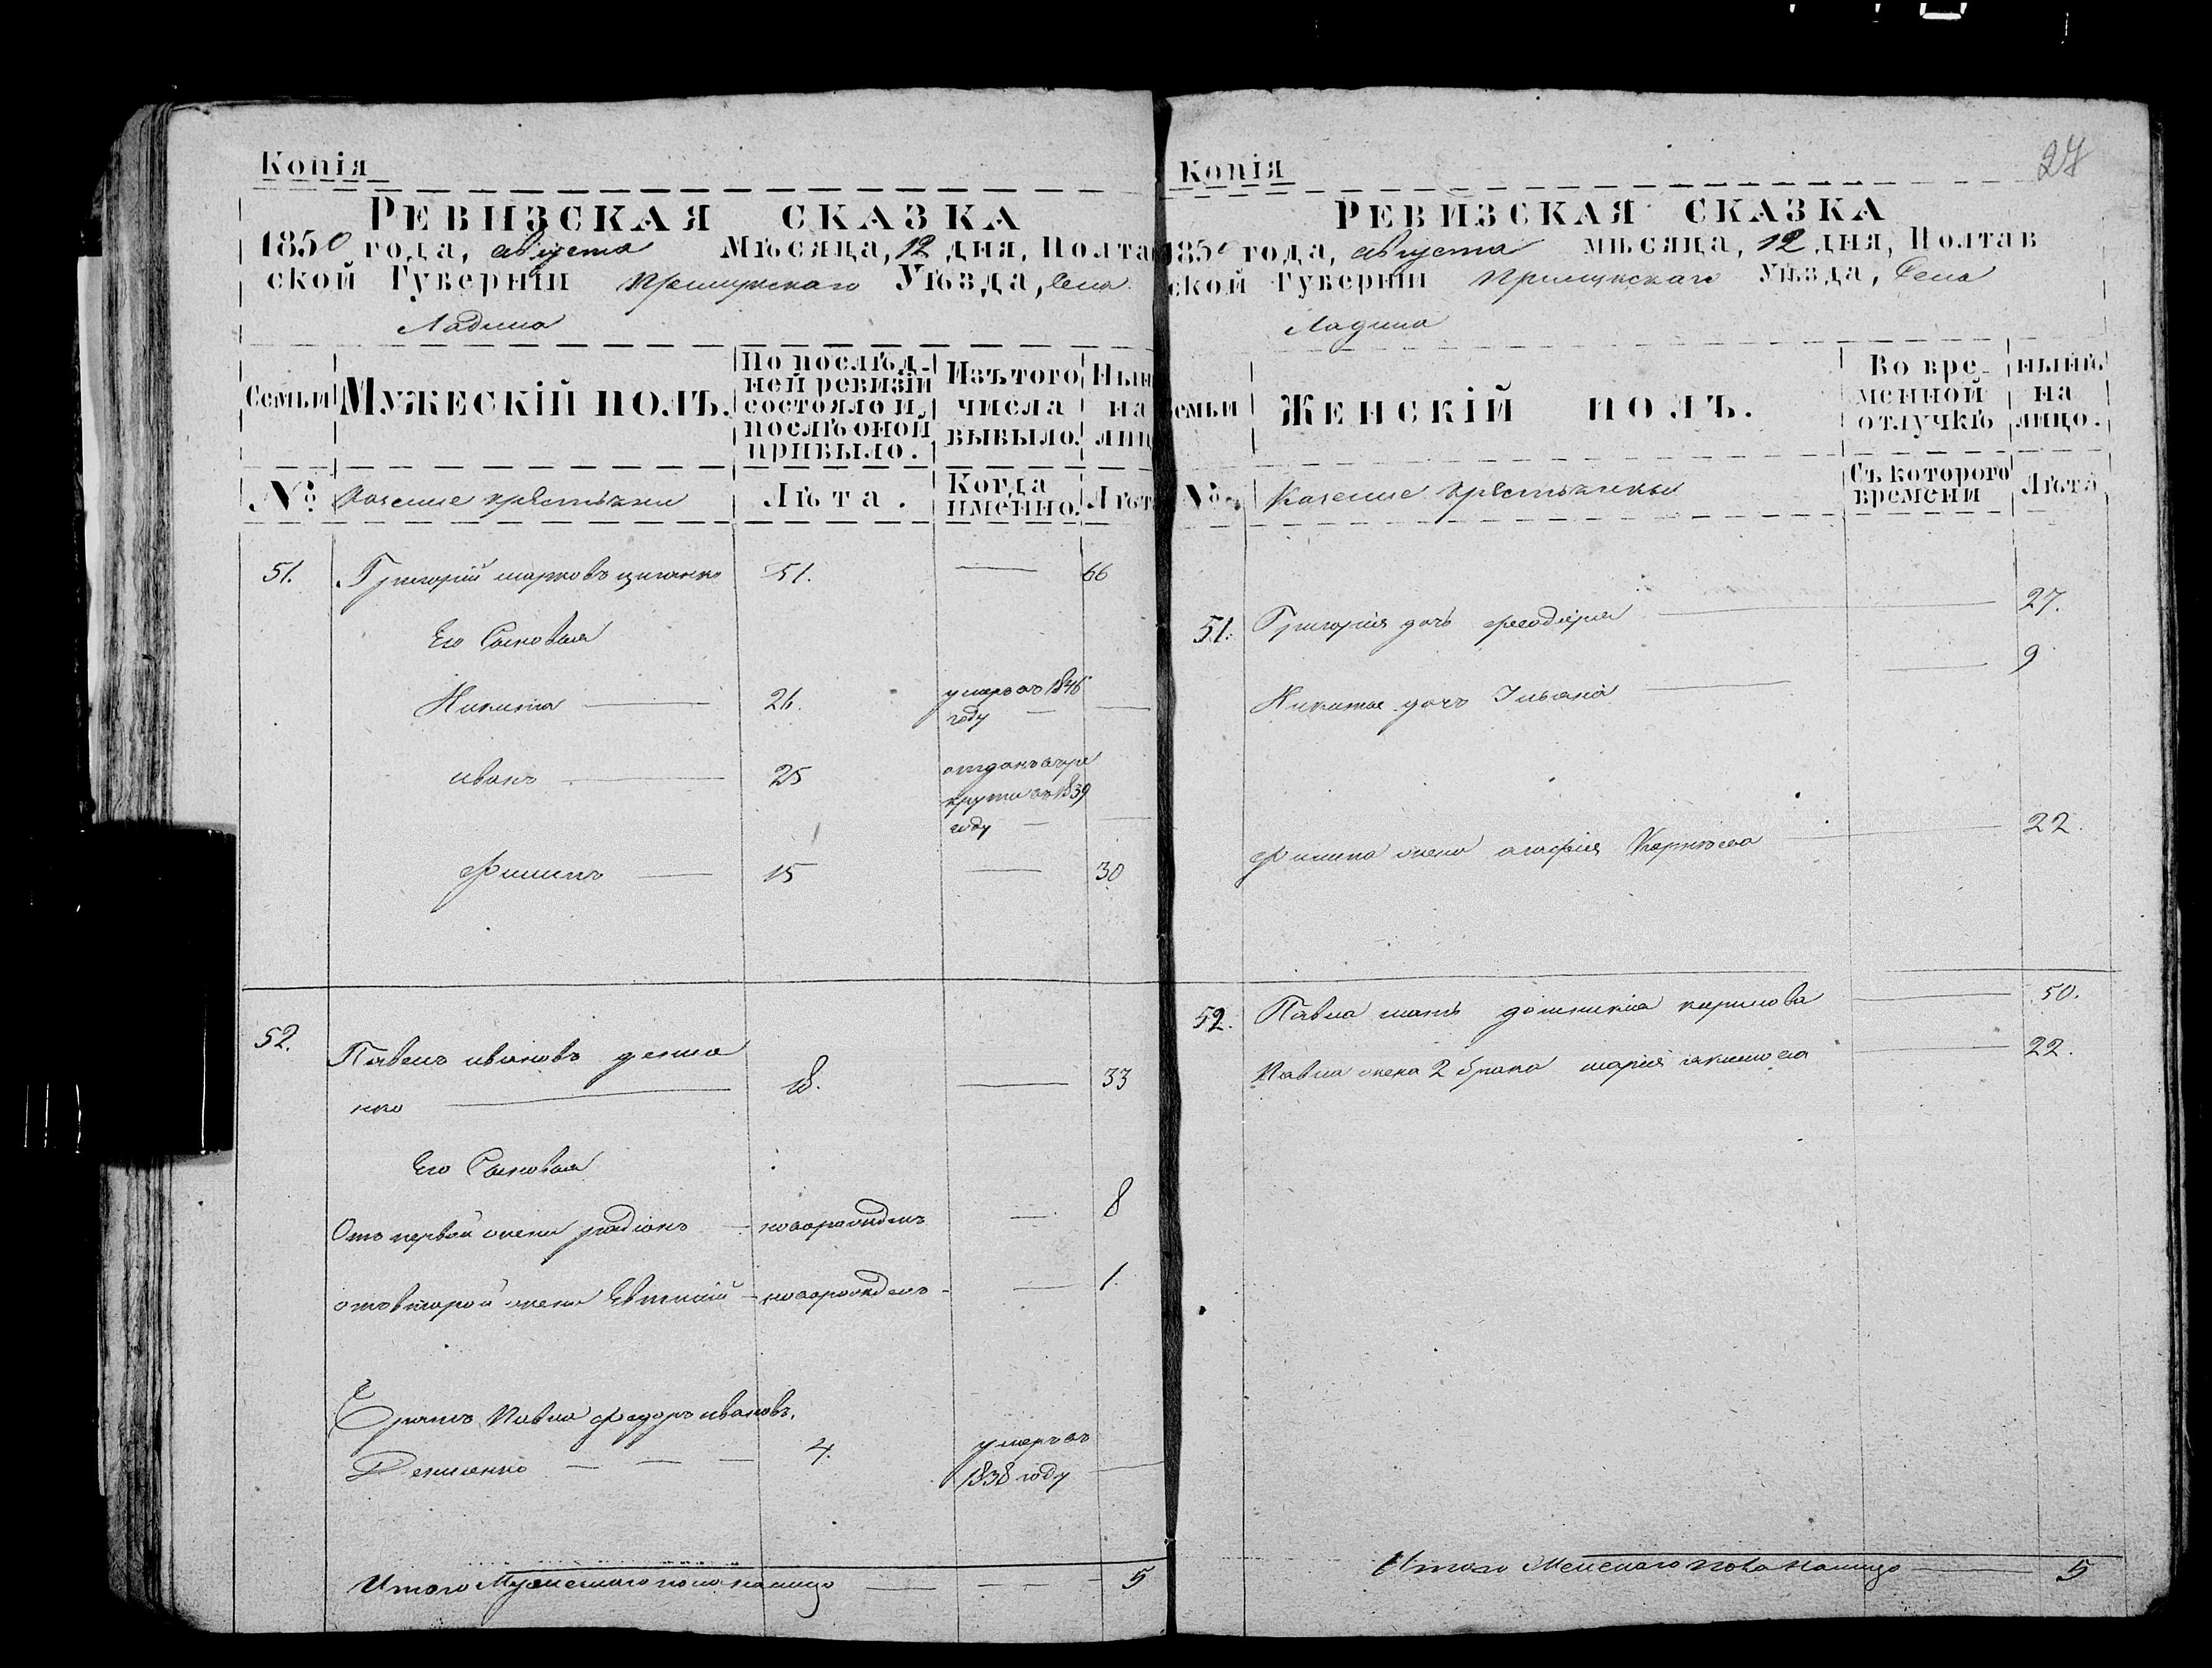 Копія
РЕВИЗСКАЯ СКАЗКА
1850 года, августа Мѣсяца, 12 дня, Полта
ской Губерніи Прилукскаго Уѣзда, Села
Ладина
Семьи
МУЖЕСКІЙ ПОЛЪ.
По послѣд-
ней ревизіи
состояло и
послѣ оной
прибыло.
Изъ того
числа
выбыло.
Нын
на
лиц
№
Казенные крестьяни
Лѣта.
Когда
именно.
Лѣт
51. Григорій марковъ циганко 51. 66
Его Сыновья
Никита 26. умеръ въ 1846
году
иванъ 25 отданъ въ ре
круты въ 1839
году
Филипъ 15 30
52. Павелъ ивановъ деми
нко 18. 33
Его Сыновья
Отъ первой жены радіонъ новорожденъ 8
отъ второй жены Евтихій новорожденъ 1.
братъ Павла федоръ ивановъ.
4. умеръ въ
1838 году
Итого Мужескаго пола налицо 5
Копія
27
РЕВИЗСКАЯ СКАЗКА
1850 года, августа мѣсяца, 12 дня, Полтав
ской Губерніи Прилукскаго Уѣзда, Села
Ладина
емьи
ЖЕНСКІЙ ПОЛЪ.
Во вре-
менной
отлучкѣ
нынѣ
на
лицо.
№
Казенные Крестьянки
Съ которого
времени
Лѣта
51. Григорія дочь феодосія 27.
Никиты дочь Ульяна 9
Филипа жена агафія Корнѣева 22.
52. Павла мать домникія кирилова 50.
Павла жена 2 брака марія якимова 22.
Итого Женскаго пола налицо 5